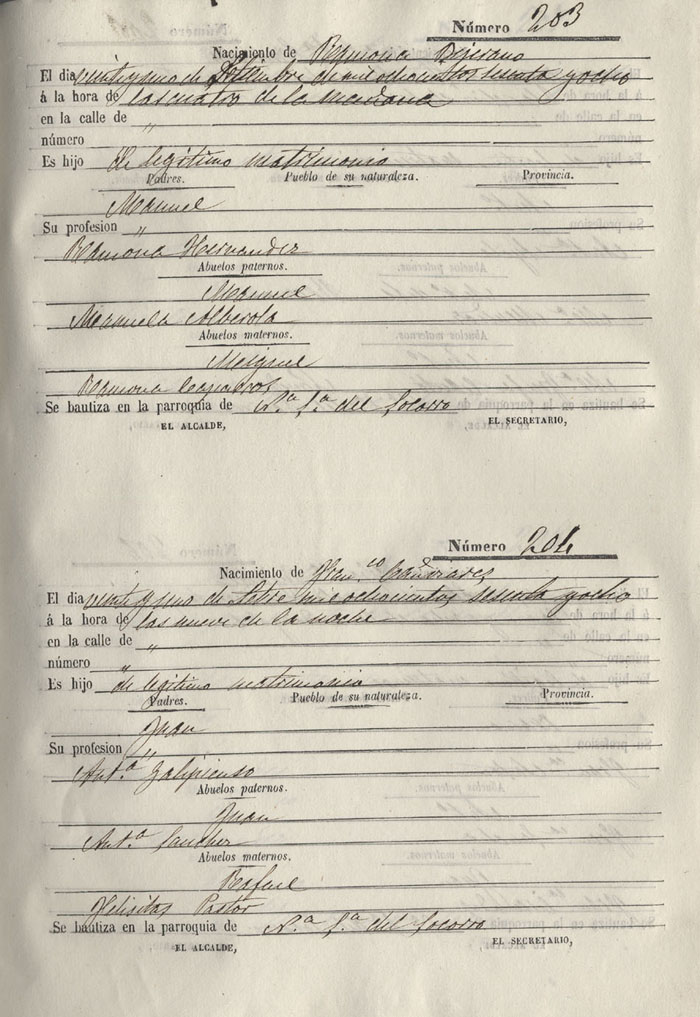 Número 203
Nacimiento de Ramona
El dia veinte y uno de Setiembre de mil ochocientos sesenta y ocho
á la hora de las cuatro de la mañana
en la calle de "
número
Es hijo de legitimo matrimonio
Padres. Pueblo de su naturaleza. Provincia.
Manuel
Su profesion "
Ramona Hernandez
Abuelos paternos.
Manuel
Manuela Alberola
Abuelos maternos.
Miguel
Ramona
Se bautiza en la parroquia de N.ª S.ª del Socorro
EL ALCALDE, EL SECRETARIO,
Número 204
Nacimiento de Fran.co Cañizares
El dia veinte y uno de Setbre mil ochocientos sesenta y ocho
á la hora de las nueve de la noche
en la calle de "
número "
Es hijo de legitimo matrimonio
Padres. Pueblo de su naturaleza. Provincia.
Juan
Su profesion "
Ant.ª Galipienso
Abuelos paternos.
Juan
Ant.ª Sanchez
Abuelos maternos.
Rafael
Felisitas Pastor
Se bautiza en la parroquia de N.ª S.ª del Socorro
EL ALCALDE, EL SECRETARIO,